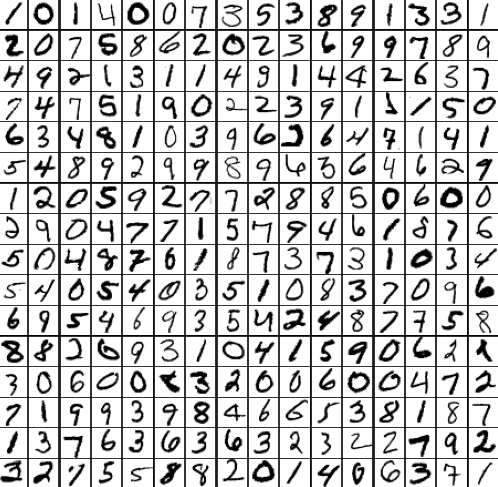 1 0 1 4 0 0 7 3 5 3 8 9 1 3 3 1
2 0 7 5 8 6 2 0 2 3 6 9 9 7 8 9
4 9 2 1 3 1 1 4 9 1 4 4 2 6 3 7
7 4 7 5 1 9 0 2 2 3 9 1 1 1 5 0
6 3 4 8 1 0 3 9 6 2 6 4 7 1 4 1
5 4 8 9 2 9 9 8 9 6 3 6 4 6 2 9
1 2 0 5 9 2 7 7 2 8 8 5 0 6 0 0
2 9 0 4 7 7 1 5 7 9 4 6 1 8 7 6
5 0 4 8 7 6 1 8 7 3 7 3 1 0 3 4
5 4 0 5 4 0 3 5 1 0 8 3 7 0 9 6
6 9 5 4 6 9 3 5 4 2 4 8 7 7 5 8
8 8 2 6 9 3 1 0 4 1 5 9 0 6 2 1
3 0 6 0 0 3 2 0 0 6 0 0 4 7 2
7 1 9 9 3 9 8 4 6 6 5 3 8 1 8 7
1 3 7 6 3 6 3 6 3 2 3 2 2 7 9 2
3 2 7 5 5 8 8 2 0 1 4 0 6 3 7 1